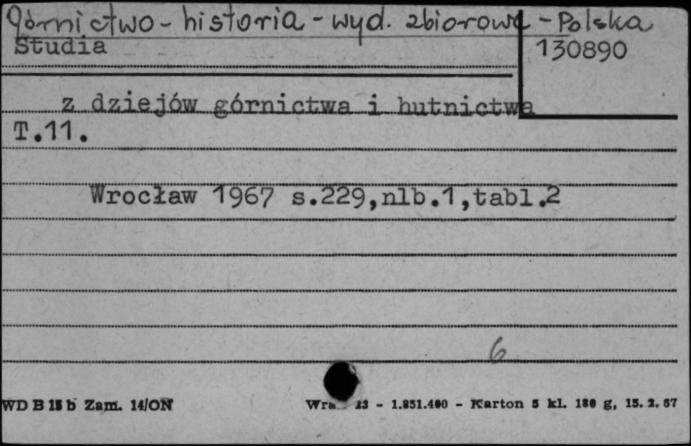 Górnictwo - historia - wyd. zbiorowe - Polska
Studia
130890
z dziejów górnictwa i hutnictwa
T.11.
Wrocław 1967 s.229,nlb.1,tabl.2
6
WD B 15 b Zam. 14/ON
23 - 1.851.400 - Karton 5 kl. 180 g, 15. 2. 67